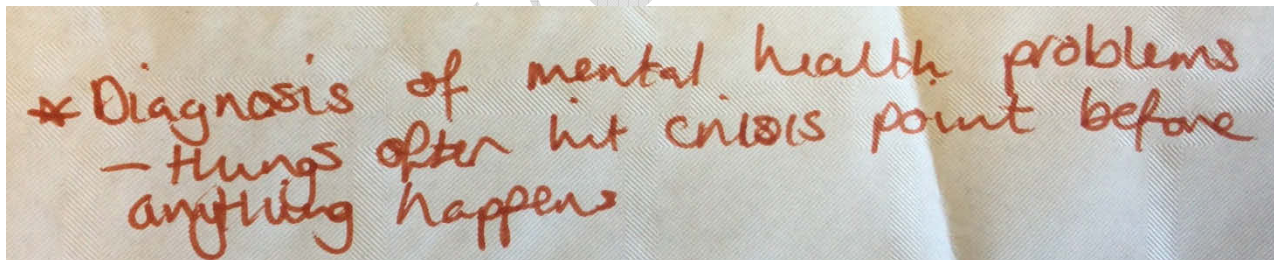 * Diagnosis of mental health problems
- things often hit crisis point before
anything happens